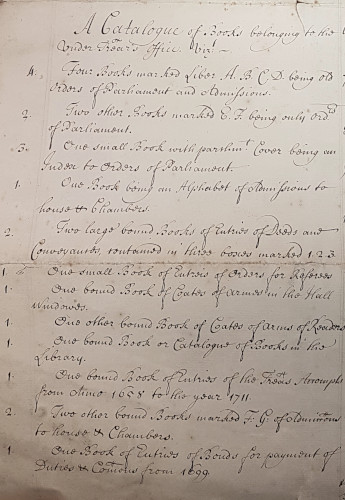 A Catalogue of Books belonging to the
Under Trea:rs Office Vizt.
4. Four Books marked Liber A. B. C. D. being old
Orders of Parliament and Admissions.
2. Two other Books marked E. F. being only Ord:rs
of Parliament.
.3. One small Book with parchmt. Cover being an
Index to Orders of Parliament.
1. One Book being an Alphabet of Admissions to
house & Chambers.
2. Two large bound Books of Entries of Deeds and
Conveyances, contained in three boxes marked 1.2.3.
1. One small Book of Entries of Orders for Referees
1. One bound Book of Coates of armes in the Hall
Windowes.
1. One other bound Book of Coates of Arms of Readers
1. One bound Book or Catalogue of Books in the
Library.
1. One bound Book of Entries of the Trea:rs Accompts
from Anno 1658 to the year 1711.
2. Two other bound Books marked F. G. of Admissions
to house & Chambers.
1 One Book of Entries of Bonds for payment of
Duties & Comons from 1699